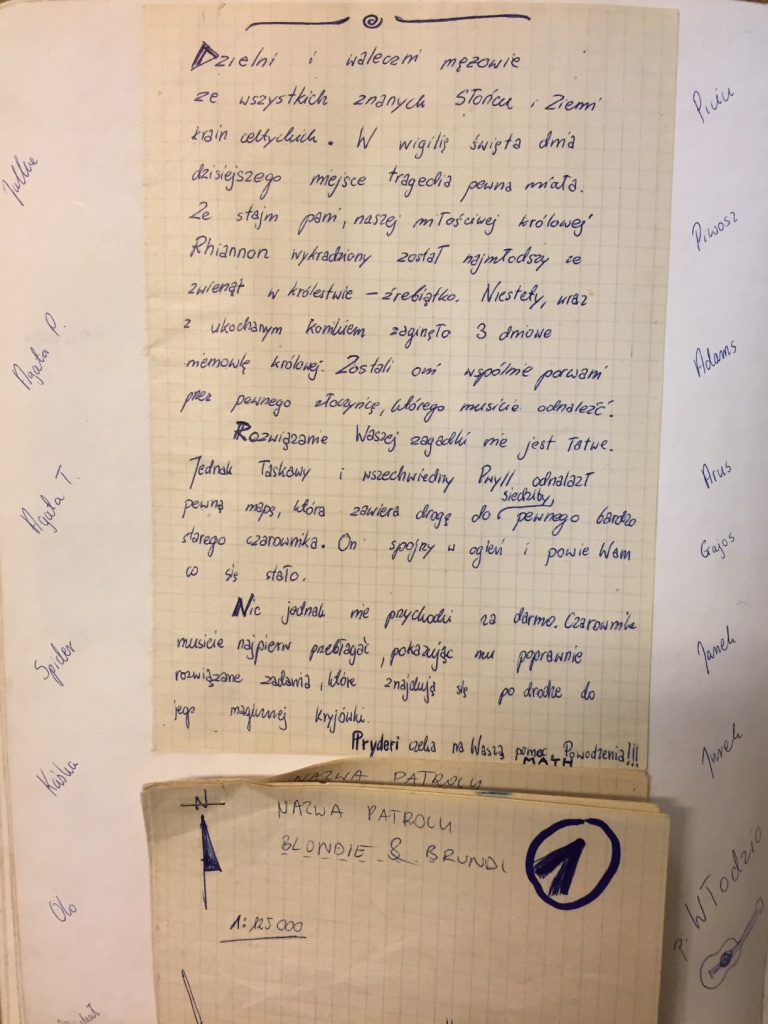 Dzielni i waleczni mężowie
ze wszystkich znanych Słońcu i Ziemi
krain celtyckich. W wigilię święta dnia
dzisiejszego miejsce tragedia pewna miała.
Ze stajni pani, naszej miłościwej królowej
Rhiannon wykradziony został najmłodszy ze
zwierząt w królestwie – źrebiątko. Niestety, wraz
z ukochanym konikiem zaginęło 3 dniowe
niemowlę królowej. Zostali oni wspólnie porwani
przez pewnego złoczyńcę, którego musicie odnaleźć.
Rozwiązanie Waszej zagadki nie jest łatwe.
Jednak łaskawy i wszechwiedny Pwyll odnalazł
pewną mapę, która zawiera drogę do siedziby pewnego bardzo
starego czarownika. On spojrzy w ogień i powie Wam
co się stało.
Nic jednak nie przychodzi za darmo. Czarownika
musicie najpierw przebłagać, pokazując mu poprawnie
rozwiązane zadania, które znajdują się po drodze do
jego magicznej kryjówki.
Pryderi czeka na Waszą pomoc. Powodzenia!!!
MATH
NAZWA PATROLU
N
NAZWA PATROLU
BLONDIE & BRUNDI
1
1:125 000
Julka
Agata P.
Agata T.
Spider
Kaśka
Olo
Piciu
Piwosz
Adams
Arus
Gajos
Janek
Jurek
p. Włodzio